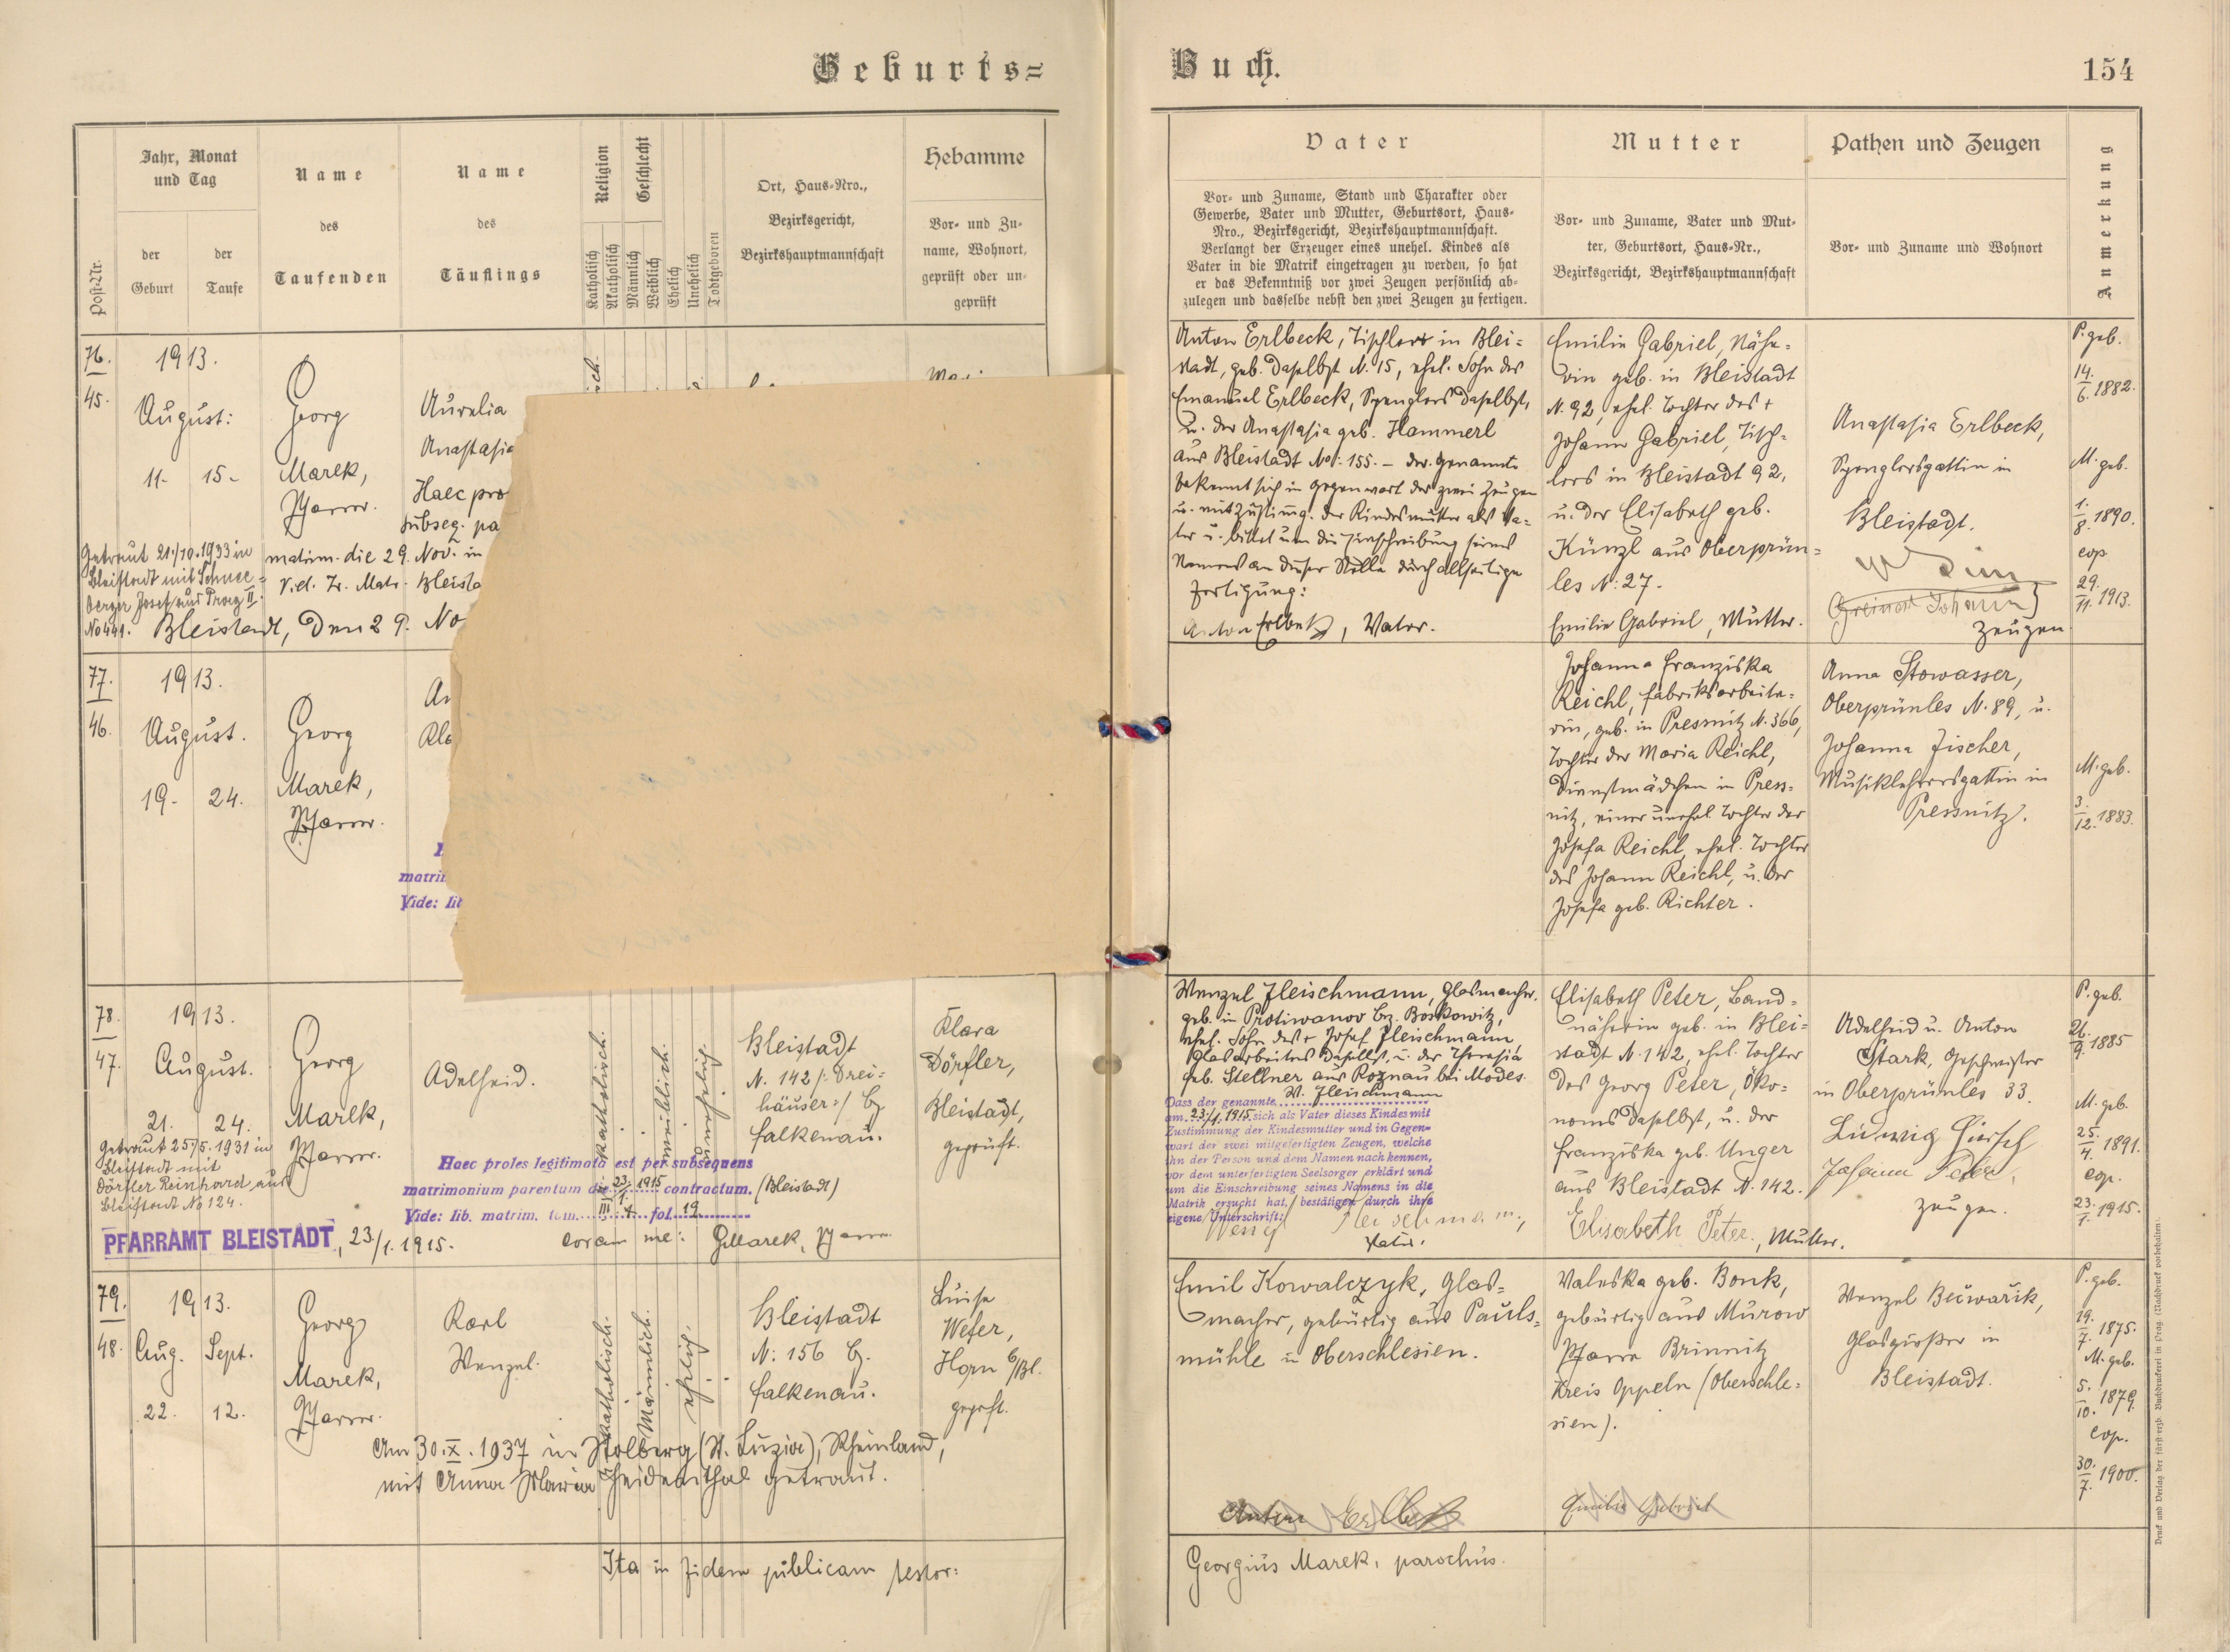 Geburts=
Buch.
154
Post-Nr.
Jahr, Monat
und Tag
der
Geburt
der
Taufe
Name
des
Taufenden
Name
des
Täuflings
Religion
Katholisch
Akatholisch
Geschlecht
Männlich
Weiblich
Ehelich
Unehelich
Todtgeboren
Ort, Haus-Nro.,
Bezirksgericht,
Bezirkshauptmannschaft
Hebamme
Vor- und Zu-
name, Wohnort,
geprüft oder un-
geprüft
Vater
Vor- und Zuname, Stand und Charakter oder
Gewerbe, Vater und Mutter, Geburtsort, Haus-
Nro., Bezirksgericht, Bezirkshauptmannschaft.
Verlangt der Erzeuger eines unehel. Kindes als
Vater in die Matrik eingetragen zu werden, so hat
er das Bekenntniß vor zwei Zeugen persönlich ab-
zulegen und dasselbe nebst den zwei Zeugen zu fertigen.
Mutter
Vor- und Zuname, Vater und Mut-
ter, Geburtsort, Haus-Nr.,
Bezirksgericht, Bezirkshauptmannschaft
Pathen und Zeugen
Vor- und Zuname und Wohnort
Anmerkung
76.
45.
1913.
August:
11-
15-
Georg
Marek,
Pfarrer.
Aurelia
Anastasia
Haec pro
subseq. pa
matrim. die 29. Nov. in
Vid. Tr. Matr. Bleista
Getraut 21./10.1933 in
Bleistadt mit Schnee=
berger Josef aus Prag II.
No 441.
Bleistadt, den 29. No
Anton Erlbeck, Tischler in Blei=
stadt, geb. daselbst N. 15, ehel. Sohn des
Emanuel Erlbeck, Spenglers daselbst,
u. der Anastasia geb. Hammerl
aus Bleistadt No: 155. – der genannte
bekennt sich in Gegenwart der zwei Zeugen
u. mit Zustimg. der Kindesmutter als Va=
ter u. bittet um die Einschreibung seines
Namens an dieser Stelle durch allseitige
Fertigung:
Anton Erlbeck, Vater.
Emilie Gabriel, Nähe=
rin geb. in Bleistadt
N. 92, ehel. Tochter des +
Johann Gabriel, Tisch=
lers in Bleistadt 92,
u. der Elisabeth geb.
Künzl aus Oberprün=
les N: 27.
Emilie Gabriel, Mutter.
Anastasia Erlbeck,
Spenglersgattin in
Bleistadt.
Johann
Zeugen
P. geb.
14./6. 1882.
M. geb.
1./8. 1890.
cop.
29./11. 1913.
77.
46.
1913.
August.
19-
24.
Georg
Marek,
Pfarrer.
matri
Vide: lib
Johanna Franziska
Reichl, Fabriksarbeite=
rin, geb. in Pressnitz N. 366,
Tochter der Maria Reichl,
Dienstmädchen in Press=
nitz, einer unehel. Tochter der
Josefa Reichl, ehel. Tochter
des Johann Reichl, u. der
Josefa geb. Richter.
Anna Stowasser,
Oberprünles N. 89, u.
Johanna Fischer,
Musiklehrersgattin in
Pressnitz.
M. geb.
3./12. 1883.
78.
47.
1913.
August.
21.
24.
Georg
Marek,
Pfarrer.
Adelheid.
katholisch.
weiblich.
unehelich.
Bleistadt
N. 142 /: Drei=
häuser :/ Bz
Falkenau.
(Bleistadt)
Klara
Dörfler,
Bleistadt,
geprüft.
Getraut 25./5. 1931 in
Bleistadt mit
Dörfler Reinhard aus
Bleistadt No 124.
Haec proles legitimata est per subsequens
matrimonium parentum die 23./1. 1915 contractum.
Vide: lib. matrim. tom. III. fol. 19
PFARRAMT BLEISTADT, 23./1. 1915.
coram me: GMarek, Pfarrer
Wenzel Fleischmann, Glasmacher.
geb. in Protiwanov Bz. Boskowitz,
ehel. Sohn des + Josef Fleischmann,
Glasarbeiters daselbst, u. der Theresia
geb. Stellner aus Roznau bei Modes.
Dass der genannte W. Fleischmann
am 23./1. 1915 sich als Vater dieses Kindes mit
Zustimmung der Kindesmutter und in Gegen=
wart der zwei mitgefertigten Zeugen, welche
ihn der Person und dem Namen nach kennen,
vor dem unterfertigten Seelsorger erklärt und
um die Einschreibung seines Namens in die
Matrik ersucht hat, bestätigen durch ihre
eigene Unterschrift:
Fleischmann,
Vater.
Elisabeth Peter, Band=
näherin geb. in Blei=
stadt N. 142, ehel. Tochter
des Georg Peter, Öko=
noms daselbst, u. der
Franziska geb. Unger
aus Bleistadt N. 142.
Elisabeth Peter., Mutter.
Adelheid u. Anton
Stark, Geschwister
in Oberprünles 33.
Ludwig Hirsch
Johann Peter,
Zeugen.
P. geb.
26./9. 1885
M. geb.
25./4. 1891.
cop.
23./1. 1915.
79.
48.
1913.
Aug.
Sept.
22.
12.
Georg
Marek,
Pfarrer.
Karl
Wenzel.
katholisch.
Männlich.
ehelich.
Bleistadt
N: 156 Bz.
Falkenau.
Luise
Wefer,
Horn b/Bl.
geprft.
Am 30.X.1937 in Stolberg (St. Luzia), Rheinland,
mit Anna Maria Heidenthal getraut.
Emil Kowalczyk, Glas=
macher, gebürtig aus Pauls=
mühle in Oberschlesien.
Valeska geb. Bonk,
gebürtig aus Murow
Pfarre Brinnitz
Kreis Oppeln (Oberschle=
sien).
Wenzel Bečwařik,
Glasgießer in
Bleistadt.
P. geb.
19./7. 1875.
M. geb.
5./10. 1879.
cop.
30./7. 1900.
Anton Erlbeck
Emilie Gabriel
Ita in fidem publicam testor:
Georgius Marek, parochus.
Druck und Verlag der fürst-erzb. Buchdruckerei in Prag. (Nachdruck vorbehalten).